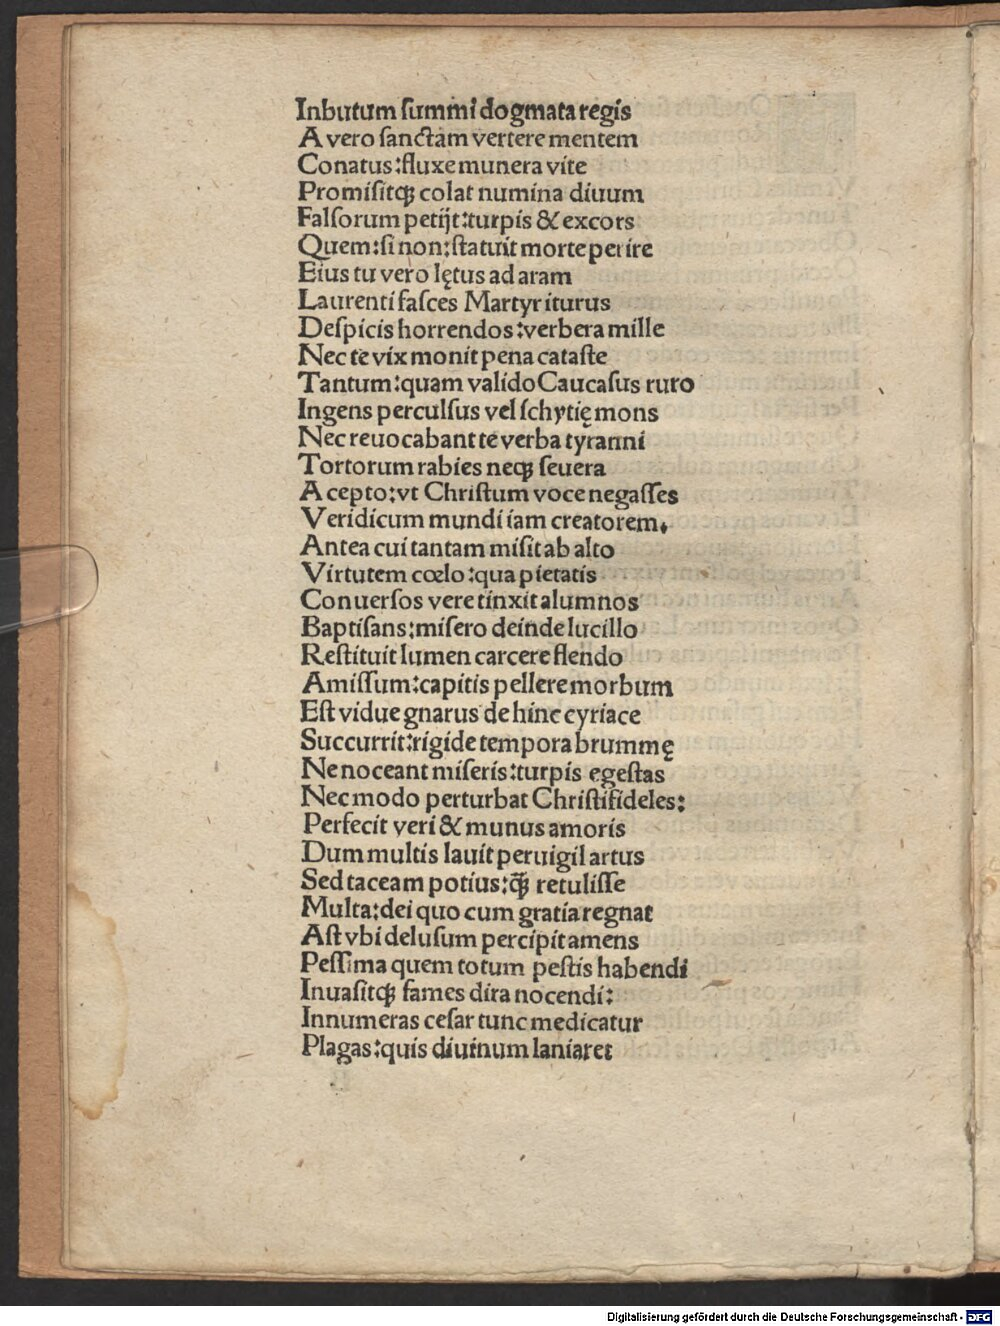 Inbutum ſummi dogmata regis
A vero ſanctam vertere mentem
Conatus:fluxe munera vite
Promiſitqꝫ colat numina diuum
Falſorum petijt:turpis & excors
Quem:ſi non:ſtatuit morte perire
Eius tu vero lętus ad aram
Laurenti faſces Martyr iturus
Deſpicis horrendos:verbera mille
Nec te vix monit pena cataſte
Tantum:quam valido Caucaſus ruro
Ingens perculſus vel ſchytię mons
Nec reuocabant te verba tyranni
Tortorum rabies neqꝫ ſeuera
A cepto:vt Chriſtum voce negaſſes
Veridicum mundi iam creatorem.
Antea cui tantam miſit ab alto
Virtutem cœlo:qua pietatis
Conuerſos vere tinxit alumnos
Baptiſans:miſero deinde lucillo
Reſtituit lumen carcere flendo
Amiſſum:capitis pellere morbum
Eſt vidue gnarus de hinc cyriace
Succurrit:rigide tempora brummę
Ne noceant miſeris:turpis egeſtas
Nec modo perturbat Chriſtifideles:
Perfecit veri & munus amoris
Dum multis lauit peruigil artus
Sed taceam potius:qꝫ̃ retuliſſe
Multa:dei quo cum gratia regnat
Aſt vbi deluſum percipit amens
Peſſima quem totum peſtis habendi
Inuaſitqꝫ fames dira nocendi:
Innumeras ceſar tunc medicatur
Plagas:quis diuinum laniaret
Digitalisierung gefördert durch die Deutsche Forschungsgemeinschaft - DFG